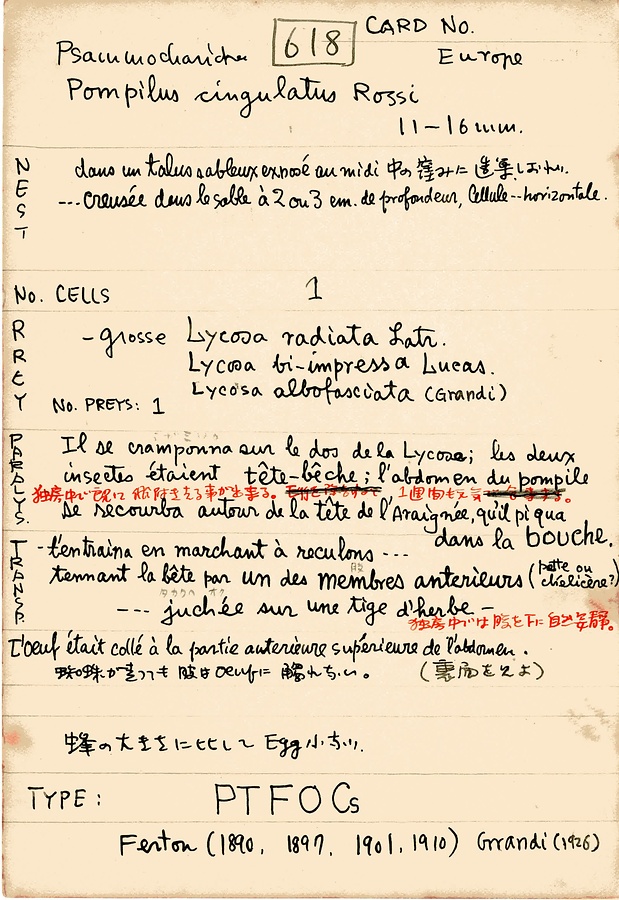 618 CARD No.
Psammocharidae Europe
Pompilus cingulatus Rossi
11-16 mm.
NEST
dans un talus sableux exposé au midi 中の窪みに造巣
--- creusée dans le sable à 2 ou 3 cm. de profondeur, Cellule -- horizontale.
No. CELLS 1
PREY
- grosse Lycosa radiata Latr.
Lycosa bi-impressa Lucas.
Lycosa albofasciata (Grandi)
No. PREYS: 1
PARALYS.
Il se cramponna sur le dos de la Lycose; les deux
insectes étaient tête-bêche; l'abdomen du pompile
独房中で既に
se recourba autour de la tête de l'Araignée, qu'il piqua
dans la bouche.
TRANSP.
- t'entraina en marchant à reculons ---
tennant la bête par un des membres anterieurs (patte ou chelicère?)
--- juchée sur une tige d'herbe -
独房中では腹を下に自然姿勢。
L'oeuf était collé à la partie anterieure supérieure de l'abdomen.
蜘蛛が立っても肢はoeufに触れない。 (裏面を見よ)
蜂の大きさに比して Egg 小さい.
TYPE: PTFOCs
Ferton (1890, 1897, 1901, 1910) Grandi (1926)